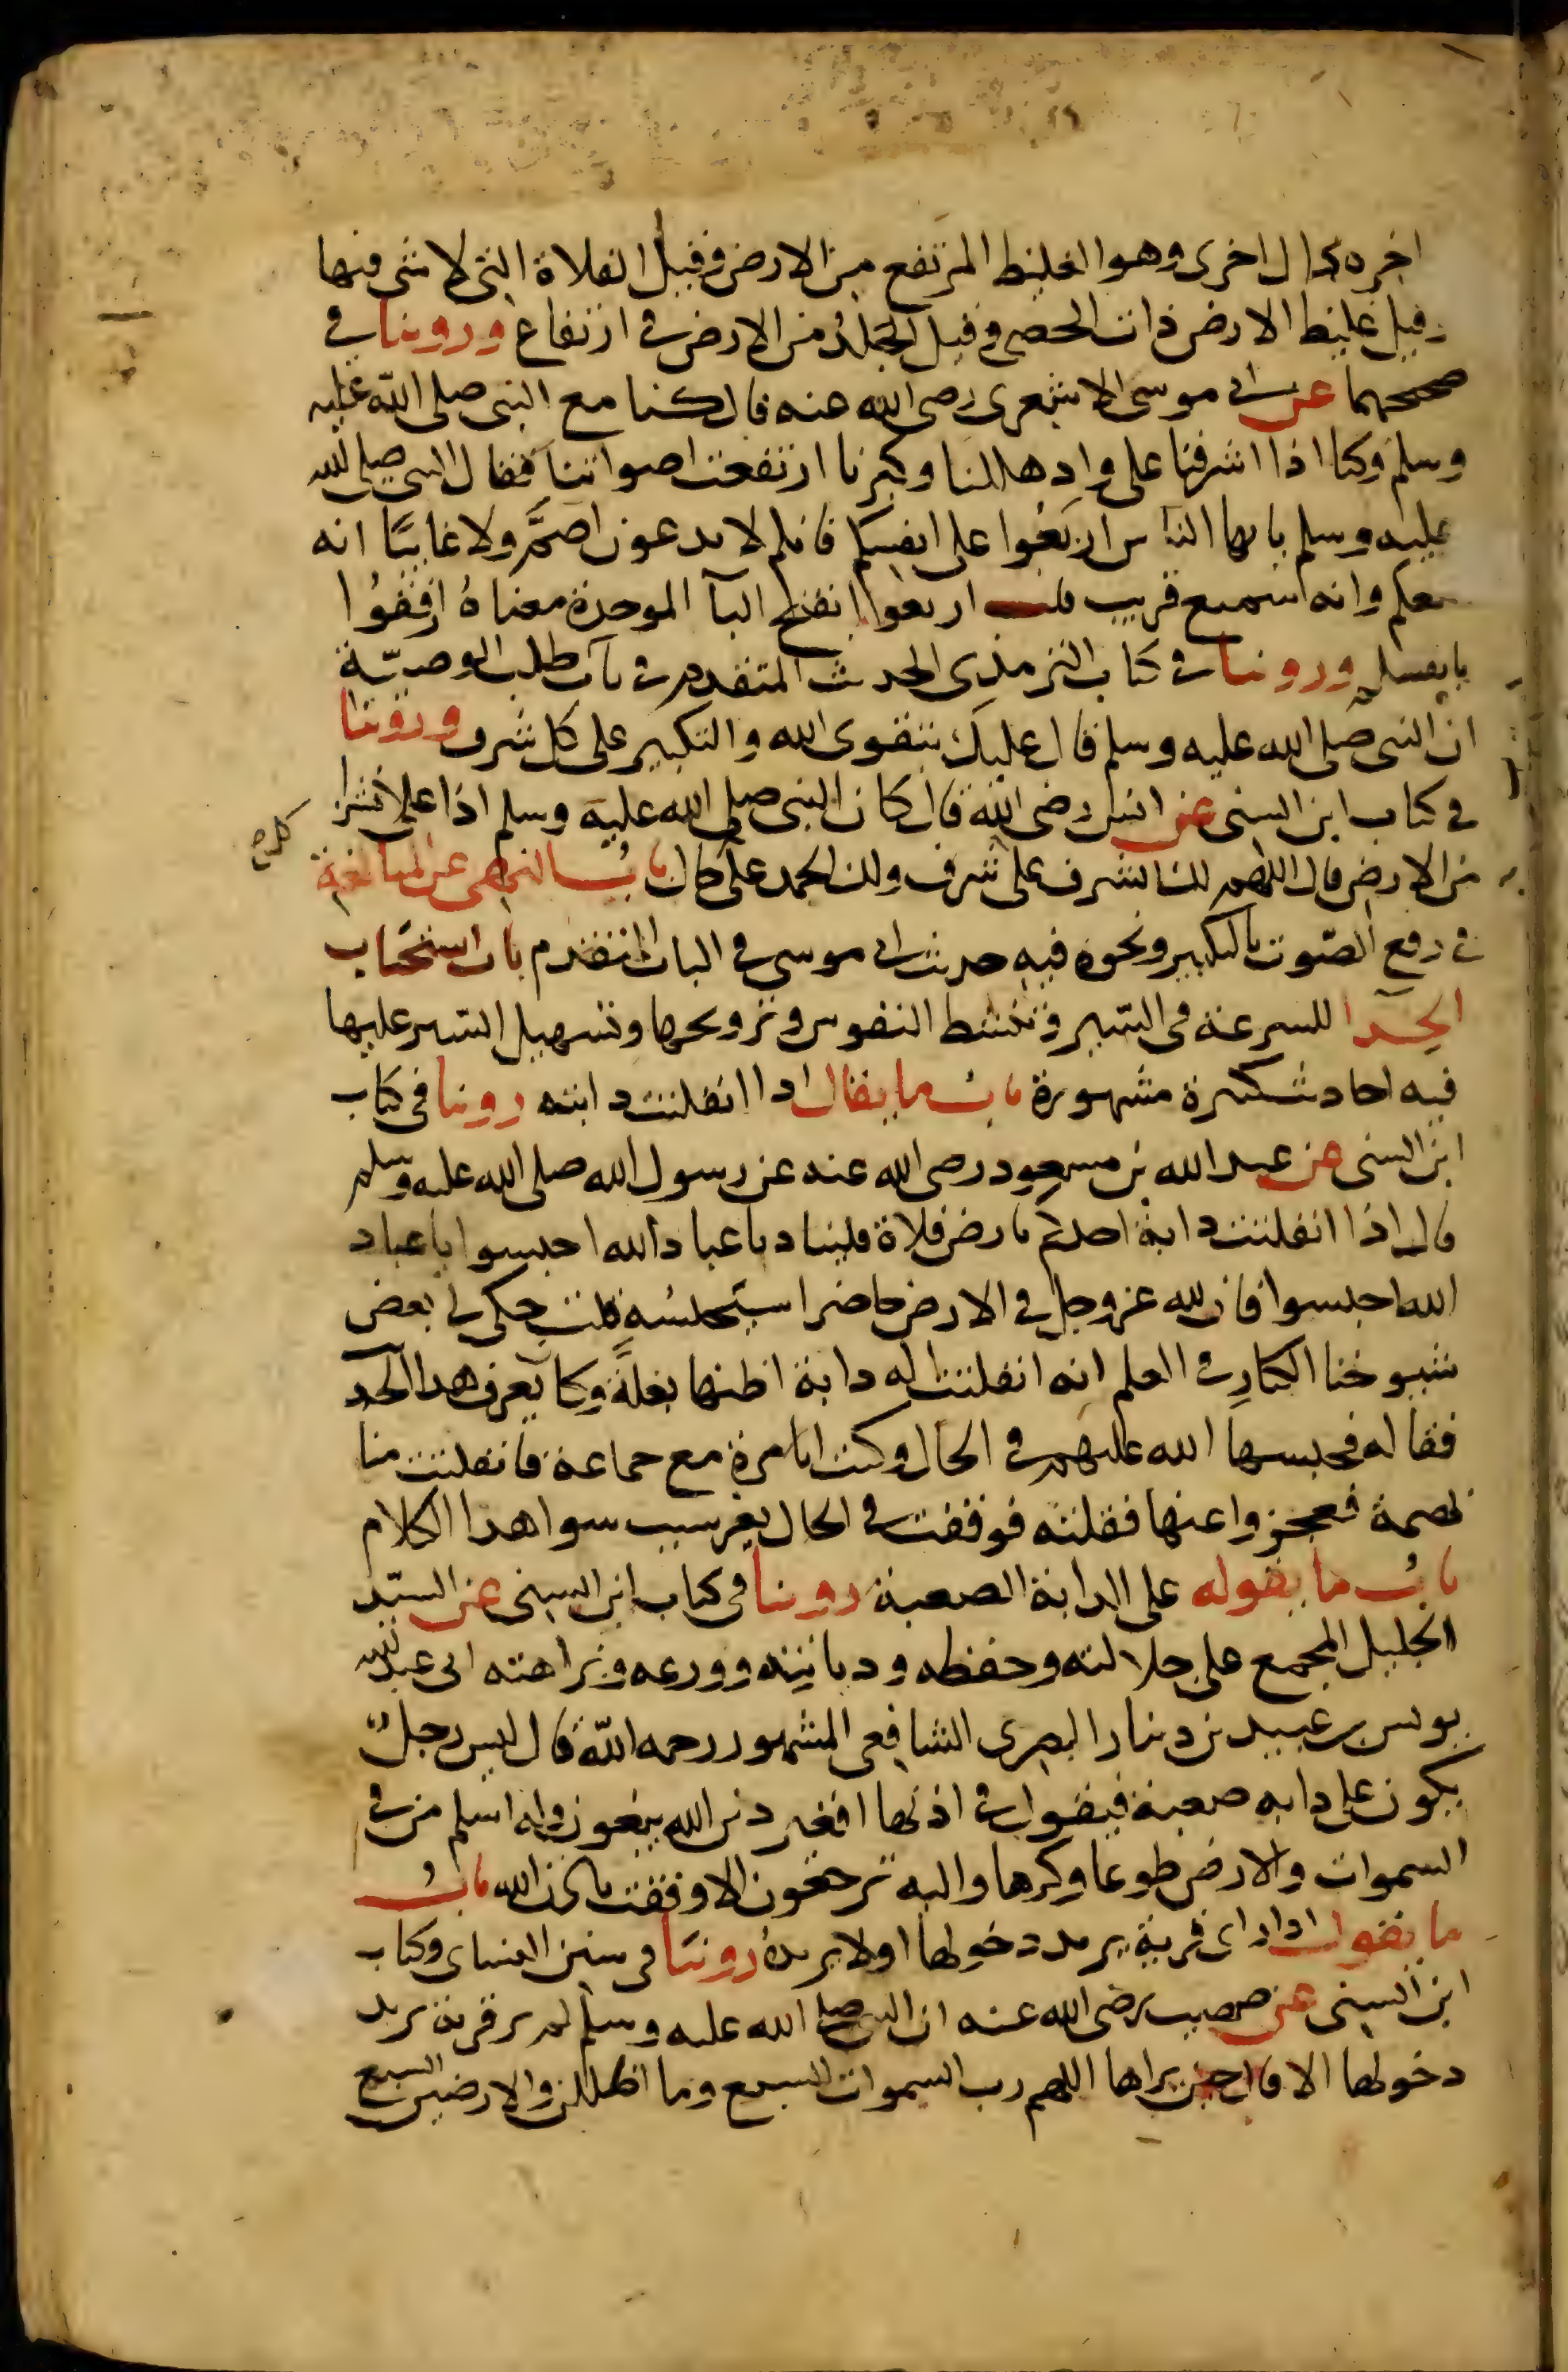 اخره دال اخرى وهو الغليظ المرتفع من الارض وقيل الفلاة التى لا شى فيها
وقيل غليظ الارض ذات الحصى وقيل الجلد من الارض فى ارتفاع وروينا فى
صحيحهما عن ابى موسى الاشعرى رضى الله عنه قال كنا مع النبى صلى الله عليه
وسلم وكنا اذا اشرفنا على واد هللنا وكبرنا ارتفعت اصواتنا فقال النبى صلى الله
عليه وسلم يا ايها الناس اربعوا على انفسكم فانكم لا تدعون اصم ولا غايبا انه
معكم وانه سميع قريب قلت اربعوا بفتح البآ الموحدة معناه ارفقوا
بانفسكم وروينا فى كتاب الترمذى الحديث المتقدم فى باب طلب الوصية
ان النبى صلى الله عليه وسلم قال عليك بتقوى الله والتكبير على كل شرف وروينا
فى كتاب ابن السنى عن انس رضى الله قال كان النبى صلى الله عليه وسلم اذا علا نشزا
من الارض قال اللهم لك الشرف على شرف ولك الحمد على حال باب النهى عن المبالغة
كل صح
فى رفع الصوت بالتكبير ونحوه فيه حديث ابى موسى فى الباب المتقدم باب استحباب
الحدا للسرعة فى السير وتنشيط النفوس وترويحها وتسهيل السير عليها
فيه احاديث كثيرة مشهورة باب ما يقال اذا انفلتت دابته روينا فى كتاب
ابن السنى عن عبد الله بن مسعود رضى الله عنه عن رسول الله صلى الله عليه وسلم
قال اذا انفلتت دابة احدكم بارض فلاة فليناد يا عباد الله احبسوا يا عباد
الله احبسوا فان لله عز وجل فى الارض حاضرا سيحبسه قلت حكى لى بعض
شيوخنا الكبار فى العلم انه انفلتت له دابة اظنها بغلة وكان يعرف هذا الحد
فقاله فحبسها الله عليهم فى الحال وكنت انا مرة مع جماعة فانفلتت منا
بهيمة فعجزوا عنها فقلته فوقفت فى الحال بغير سبب سوا هذا الكلام
باب ما يقوله على الدابة الصعبة روينا فى كتاب ابن السنى عن السيد
الجليل المجمع على جلالته وحفظه وديانته وورعه ونزاهته ابى عبد الله
يونس بن عبيد بن دينار البصرى الشافعى المشهور رحمه الله قال ليس رجل
يكون على دابه صعبة فيقول فى اذنها افغير دين الله يبغون وله اسلم من فى
السموات والارض طوعا وكرها واليه ترجعون الا وقفت باذن الله باب
ما يقول اذا راى قرية يريد دخولها اولا يريده روينا فى سنن النساى وكتاب
ابن السنى عن صهيب رضى الله عنه ان النبى صلى الله عليه وسلم لم ير قرية يريد
دخولها الا قال حين يراها اللهم رب السموات السبع وما اظللن والارضين السبع